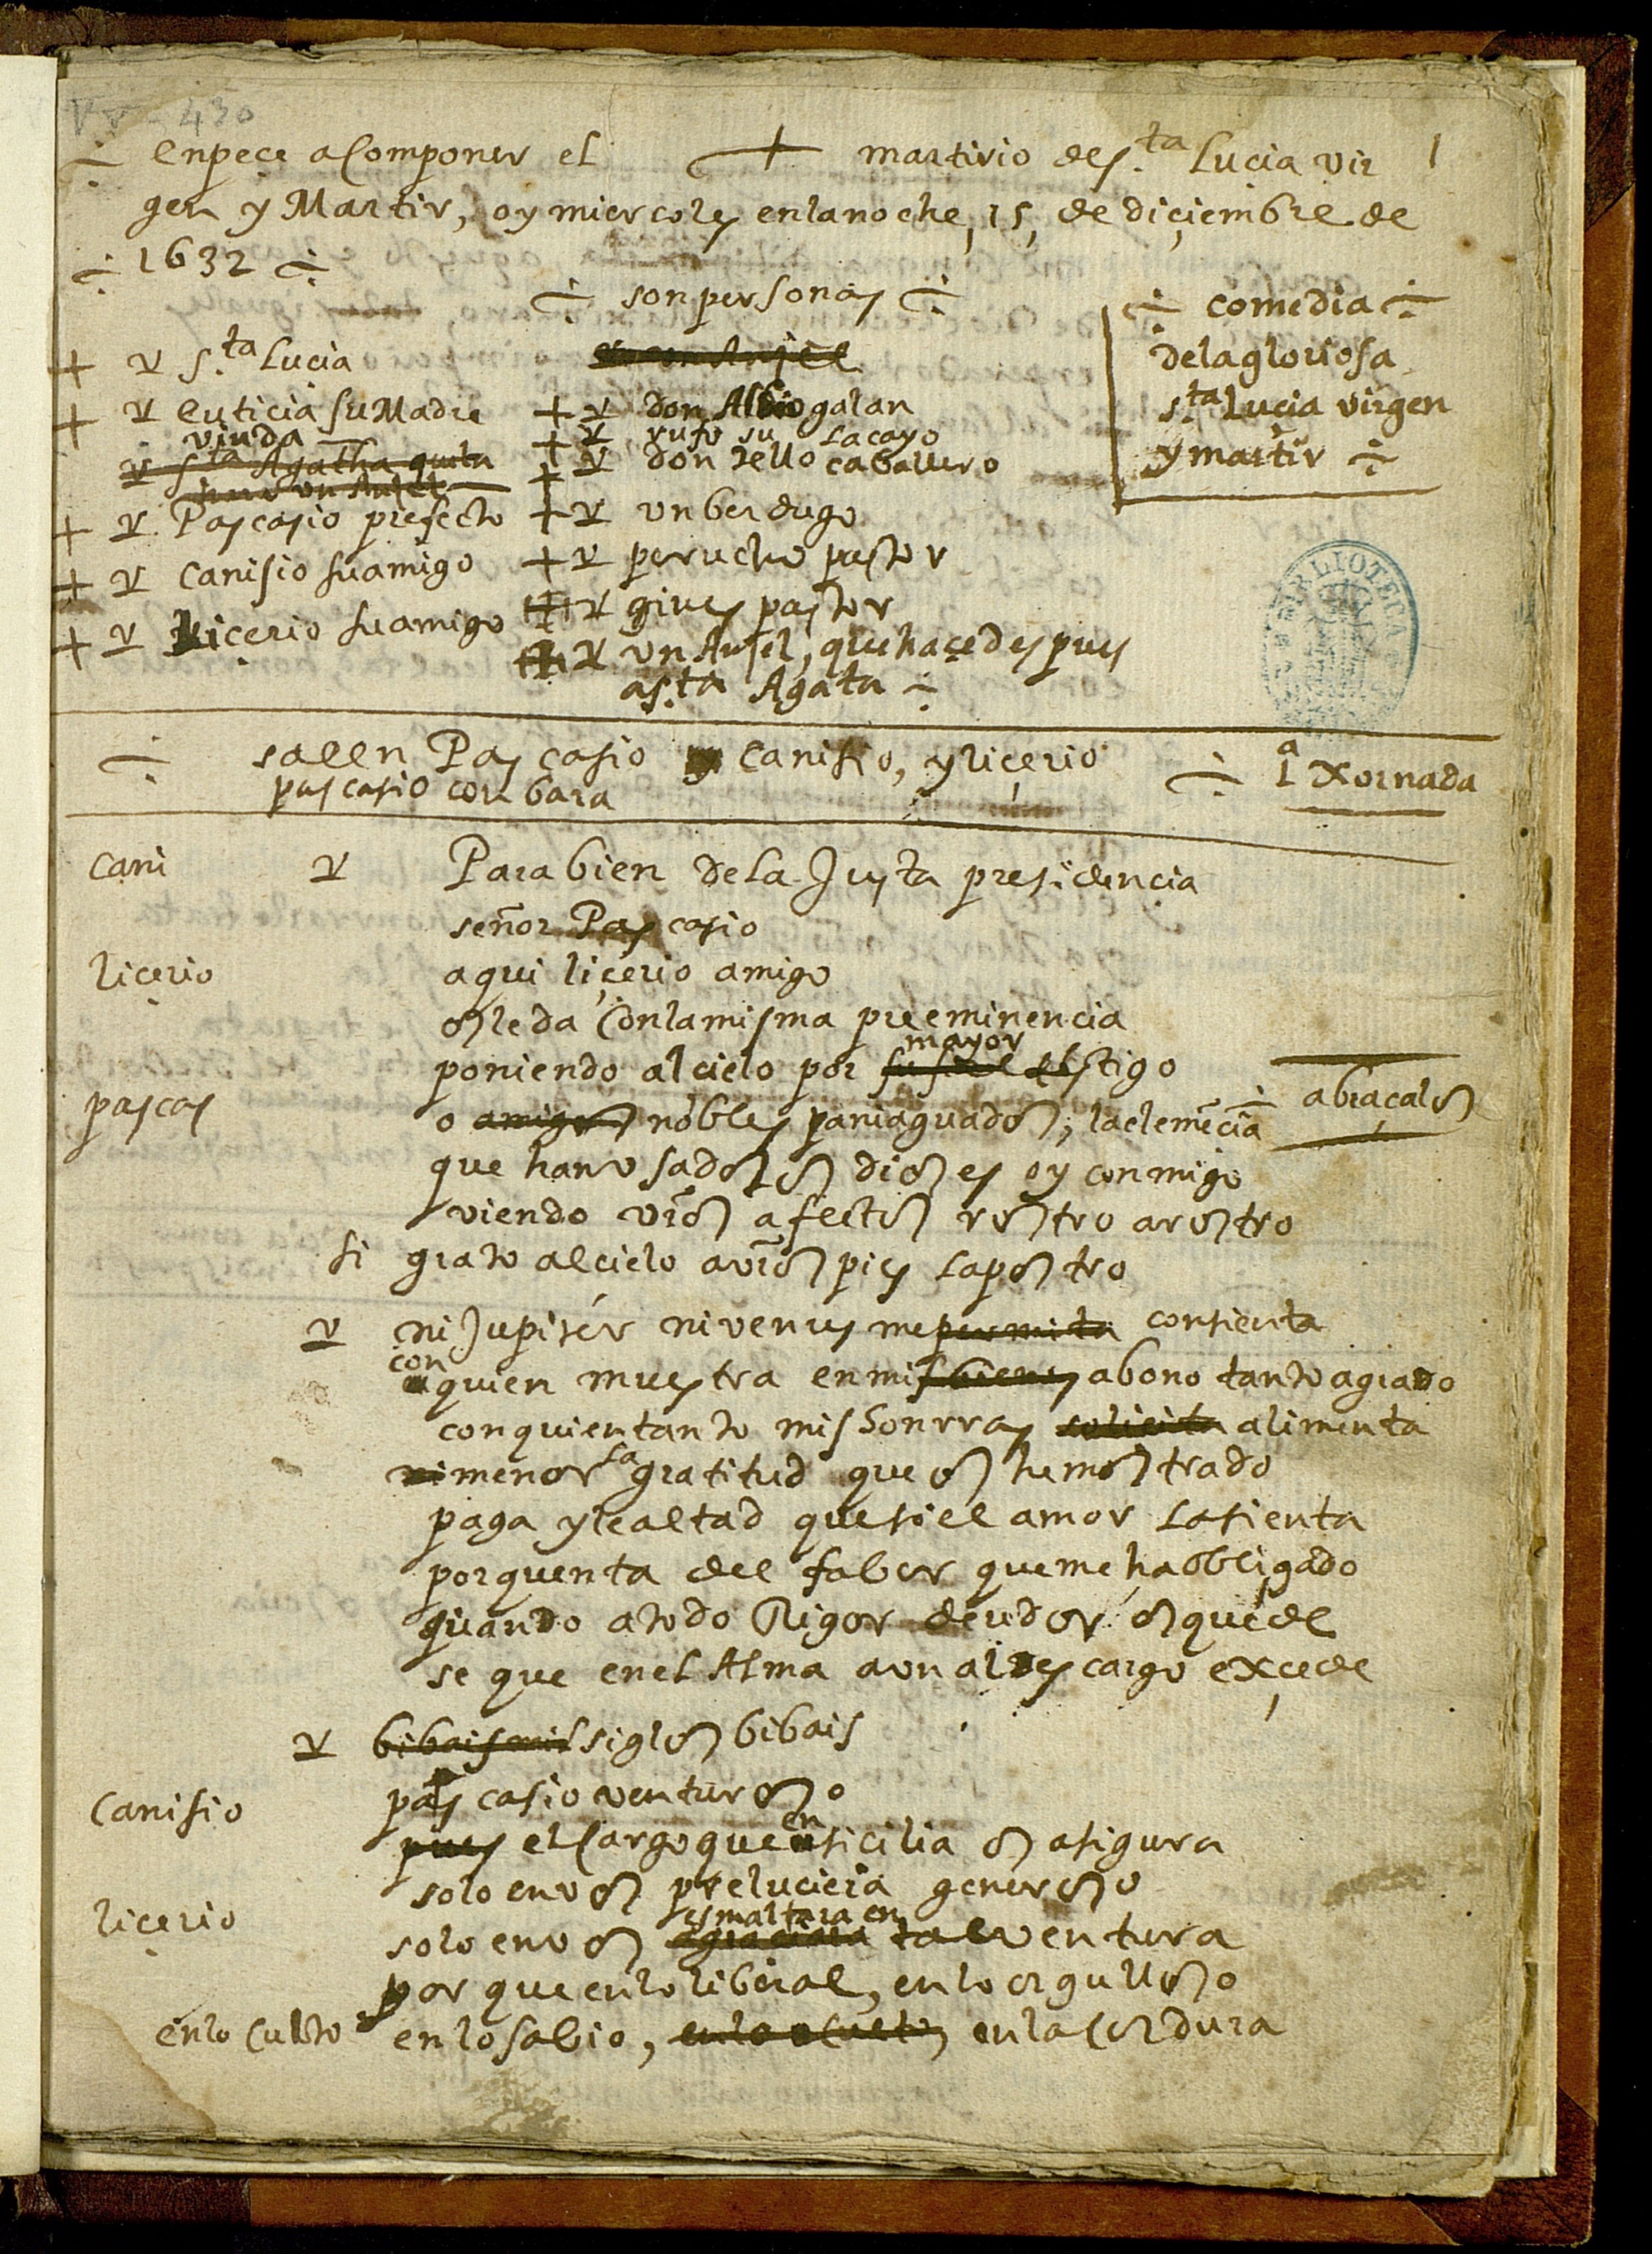 Vv - 430
enpece a Componer el + martirio de s.ta Lucia vir 1
gen y Martir, oy miercoles en la noche, 15, de diçiembre de
1632
son personas
comedia
de la gloriosa
s.ta Luçia virgen
y martir
+ v s.ta Lucia
+ v Euticia su Madre
viuda
v s.ta Agatha
+ v Pascasio prefecto
+ v Canisio su amigo
+ v Liçerio su amigo
v un Anjel
+ v don Albio galan
+ v rufo su lacayo
+ v don tello caballero
+ v un berdugo
+ v perucho pastor
+ v gines pastor
+ v un Anjel, que haçe despues
a s.ta Agata
salen Pascasio y Canisio, y liçerio
pascasio con bara
1a Xornada
Cani v Para bien de la Justa presidencia
señor Pascasio
liçerio aqui liçerio amigo
os le da Con la misma preeminencia
mayor
poniendo al cielo por su fiel testigo
pascas o amigos nobles paniaguados, la clemēcia
abraçalos
que han usado los dioses oy conmigo
viendo vr̄os afectos rostro a rostro
si grato al cielo a vr̄os pies la postro
v ni Jupiter ni venus me permita consienta
con
a quien muestra en mis bienes abono tanto agrado
con quien tanto mis honrras solicita alimenta
ni menor la gratitud que os he mostrado
paga y lealtad que si el amor la sienta
por quenta del faber que me ha obligado
quando a todo Rigor deudor os quede
se que en el Alma aun al descargo exçede
v bibais mil siglos bibais
Canisio pascasio venturoso
en
pues el Cargo que en sicilia os asigura
solo en vos preluciera generoso
esmaltara en
liçerio solo en vos agraciara tal ventura
por que en lo liberal, en lo orgulloso
en lo Culto en lo sabio, en lo oculto, en la Cordura
BIBLIOTECA